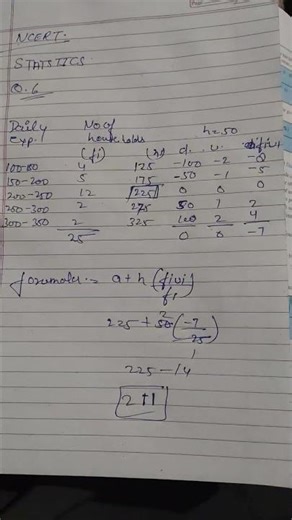 NCERT.
STATSTICS
Q.6
Daily No of h=50
Exp. households
(fi) (x) d. u. fiui
100-150 4 125 -100 -2 -8
150-200 5 175 -50 -1 -5
200-250 12 225 0 0 0
250-300 2 275 50 1 2
300-350 2 325 100 2 4
25 0 0 -7
formula :- a+h (fiui
fi)
225 + 50 (-7
25)
2
1
225 - 14
211